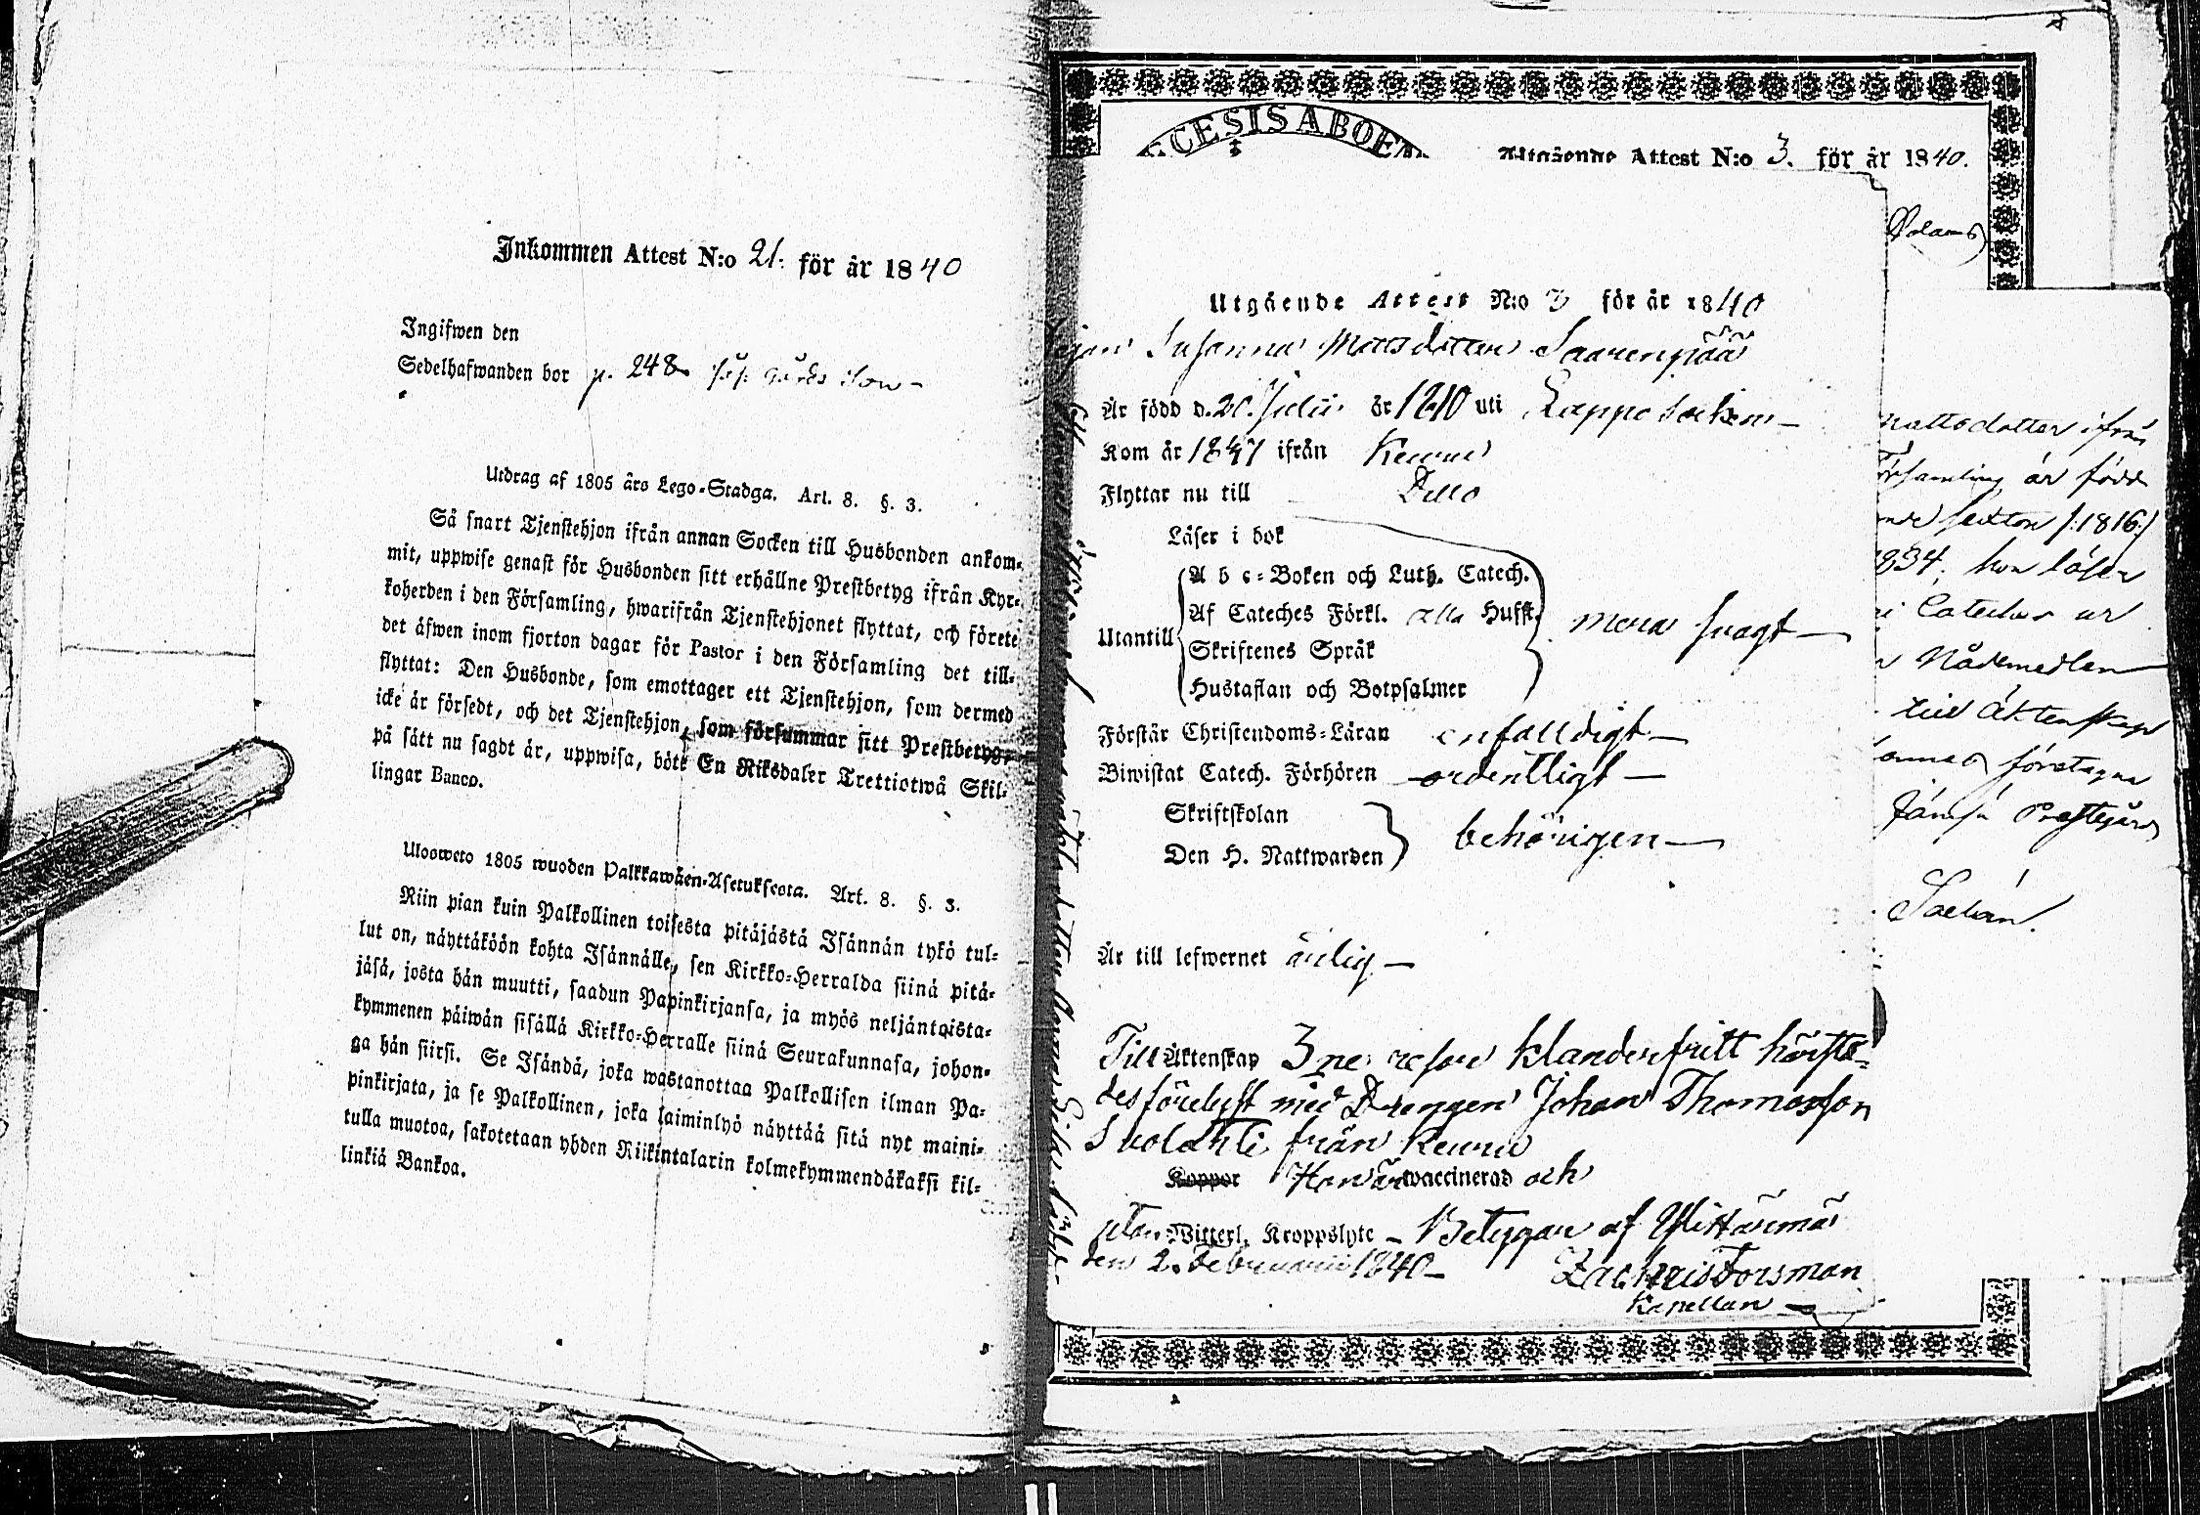 Inkommen Attest N:o 21. för år 1840
Ingifwen den
Sedelhafwanden bor p. 248
Utdrag af 1805 års Lego-Stadga. Art. 8. §. 3.
Så snart Tjenstehjon ifrån annan Socken till Husbonden ankom-
mit, uppwise genast för Husbonden sitt erhållne Prestbetyg ifrån Kyr-
koherden i den Församling, hwarifrån Tjenstehjonet flyttat, och förete
det äfwen inom fjorton dagar för Pastor i den Församling det till-
flyttat: Den Husbonde, som emottager ett Tjenstehjon, som dermed
icke är försedt, och det Tjenstehjon, som försummar sitt Prestbetyg,
på sätt nu sagdt är, uppwisa, böte En Riksdaler Trettiotwå Skil-
lingar Banco.
Ulosweto 1805 wuoden Palkkawäen-Asetuksesta. Art. 8. §. 3.
Niin pian kuin Palkollinen toisesta pitäjästä Isännän tykö tul-
lut on, näyttäköön kohta Isännälle, sen Kirkko-Herralda siinä pitä-
jäsä, josta hän muutti, saadun Papinkirjansa, ja myös neljäntoista-
kymmenen päiwän sisällä Kirkko-Herralle siinä Seurakunnasa, johon-
ga hän siirsi. Se Isändä, joka wastanottaa Palkollisen ilman Pa-
pinkirjata, ja se Palkollinen, joka laiminlyö näyttää sitä nyt maini-
tulla muotoa, sakotetaan yhden Riikintalarin kolmekymmendäkaksi kil-
linkiä Bankoa.
CESIS ABOEN
Utgående Attest N:o 3. för år 1840.
Utgående Attest N:o 3 för år 1840
Susanna Mattsdotter Saarenpää
Är född d. 20. Julii år 1810 uti Lappo socken
Kom år 1837 ifrån Keuru
Flyttar nu till Dito
Läser i bok
Utantill
A b c-Boken och Luth. Catech.
Af Cateches Förkl. alla Hufst.
Skriftenes Språk
Hustaflan och Botpsalmer
mera svagt
Förstår Christendoms-Läran enfalldigt
Biwistat Catech. Förhören ordentligt
Skriftskolan
Den H. Nattwarden
behörigen
Är till lefwernet ärlig
Till Äktenskap 3ne resor klanderfritt härstä-
des förelyst med Drengen Johan Thomasson
Suolahti från Keuru
Koppor Hon är waccinerad och
utan Witterl. Kroppslyte - Betygar af Ylistärmä
den 2. Februarii 1840
Zachris Forsman
Kapellan
mattsdotter ifrån
församling är född
sexton /:1816:/
1834; hon läser
Cateches ur
Nådemedlen
till äktenskap
företagna
Jämsä Prestegård